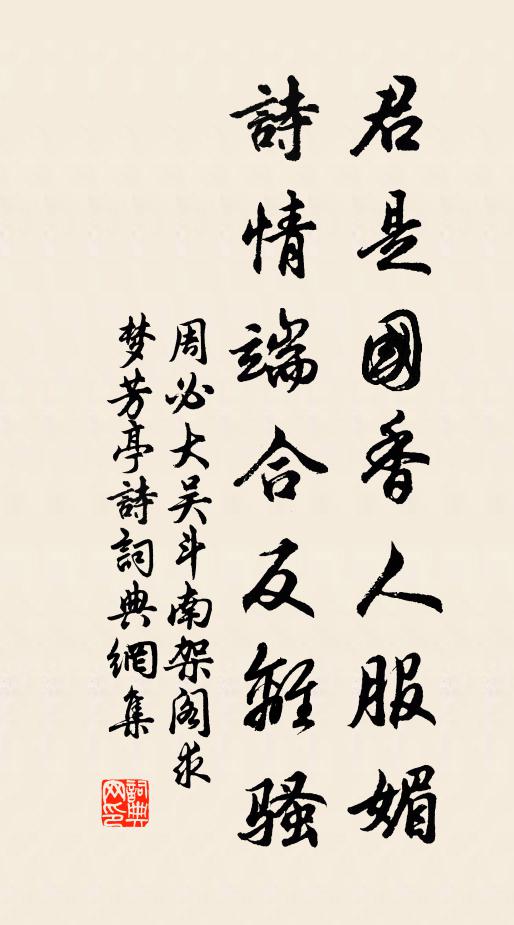 君是國香人服媚
詩情端合反離騷
周必大吴斗南架阁求
梦芳亭詩詞典網集
詞典网印